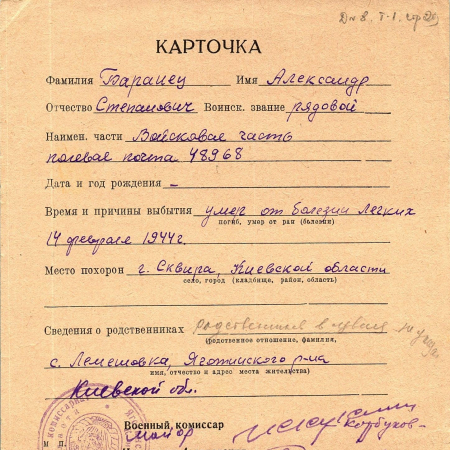 КАРТОЧКА
Фамилия Баранец Имя Александр
Отчество Степанович Воинск. звание рядовой
Наимен. части Войсковая часть
полевая почта 48968
Дата и год рождения –
Время и причины выбытия умер от болезни легких
погиб, умер от ран (болезни)
14 февраля 1944 г.
Место похорон г. Сквира, Киевской области
село, город (кладбище, район, область)
Сведения о родственниках
(родственное отношение, фамилия,
с. Лемешовка, Яготинского р-на
имя, отчество и адрес места жительства)
Киевской обл.
Военный, комиссар
майор
м п.